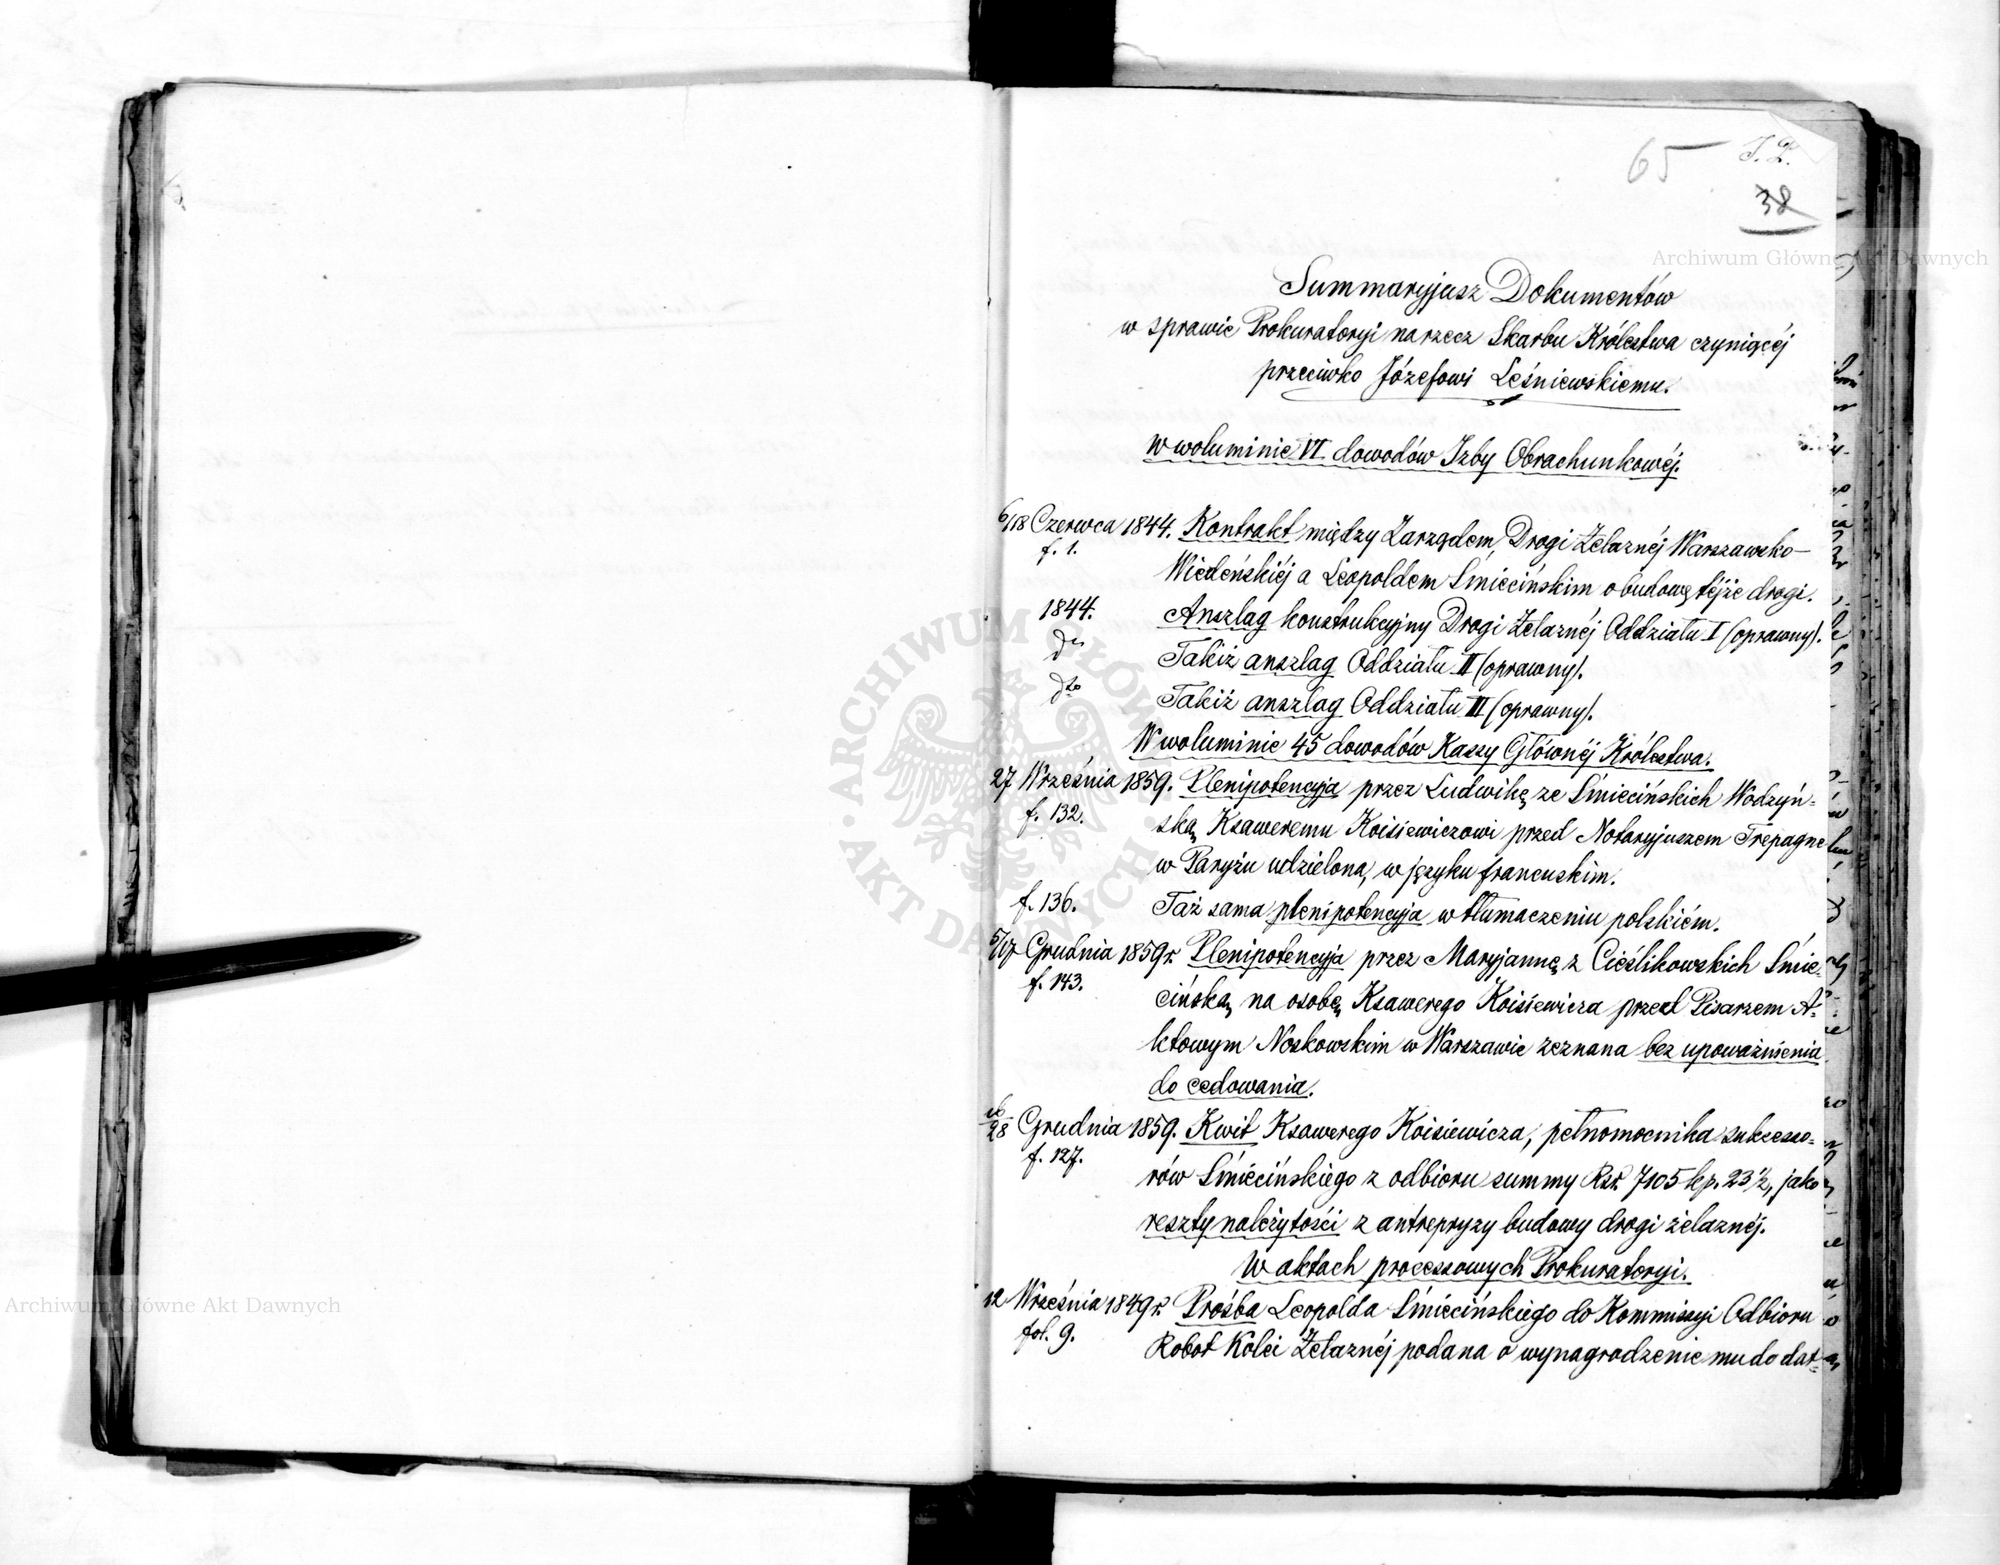 65 J. L.
38
Summaryjusz Dokumentów
w sprawie Prokuratoryi na rzecz Skarbu Królestwa czyniącéj
przeciwko Józefowi Leśniewskiemu.
W woluminie VI dowodów Izby Obrachunkowéj.
6/18 Czerwca 1844. Kontrakt między Zarządem Drogi Żelaznéj Warszawsko-
f. 1.
Wiedeńskiéj a Leopoldem Śmiécińskim o budowę téjże drogi.
1844. Anszlag konstrukcyjny Drogi Żelaznéj Oddziału I (oprawny).
dto Takiż anszlag Oddziału II (oprawny).
dto Takiż anszlag Oddziału III (oprawny).
W woluminie 45 dowodów Kassy Głównéj Królestwa.
27 Września 1859. Plenipotencyja przez Ludwikę ze Śmiecińskich Wodzyń-
f. 132. ską Ksaweremu Koisiewiczowi przed Notaryjuszem Trépagne
w Paryżu udzielona, w języku francuskim.
f. 136. Taż sama plenipotencyja w tłumaczeniu polskiém.
5/17 Grudnia 1859 r. Plenipotencyja przez Maryjannę z Cieślikowskich Śmie-
f. 143. cińską na osobę Ksawerego Koisiewicza przed Pisarzem A-
ktowym Noskowskim w Warszawie zeznana bez upoważnienia
do cedowania.
16/28 Grudnia 1859. Kwit Ksawerego Koisiewicza, pełnomocnika sukcesso-
f. 127. rów Śmiécińskiego z odbioru summy Rsr. 7105 kp. 23 1/2, jako
reszty należytości z antrepryzy budowy drogi żelaznéj.
W aktach processowych Prokuratoryi.
12 Września 1849 r. Prośba Leopolda Śmiécińskiego do Kommissyi Odbioru
fol. 9. Robot Kolei Żelaznéj podana o wynagrodzenie mu do dat-
Archiwum Główne Akt Dawnych
Archiwum Główne Akt Dawnych
ARCHIWUM GŁÓWNE AKT DAWNYCH